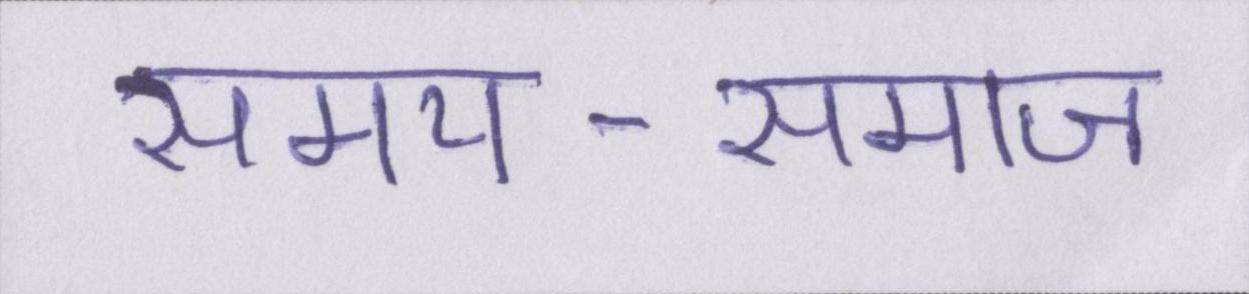 समय - समाज